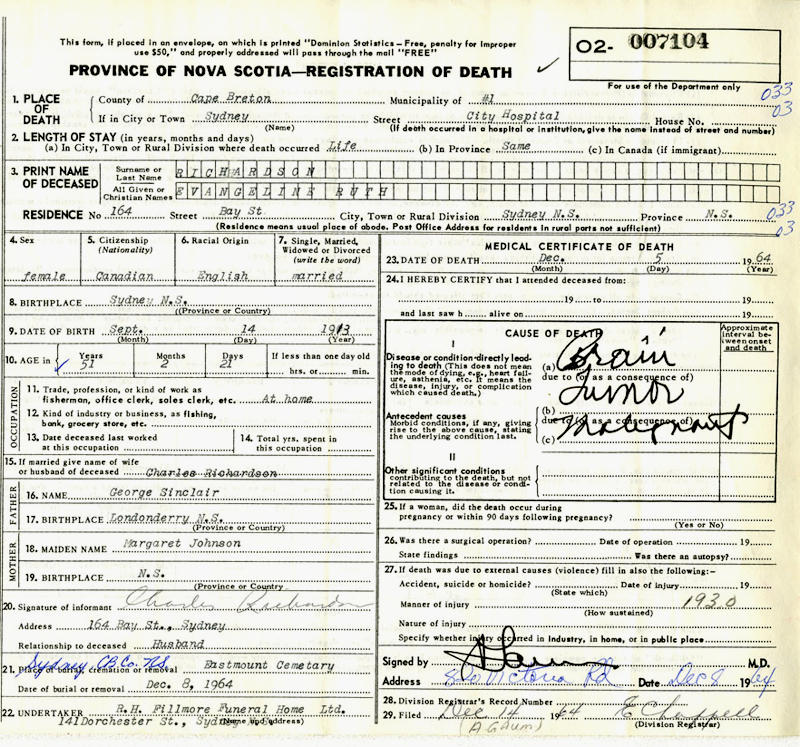 This form, if placed in an envelope, on which is printed "Dominion Statistics - Free, penalty for improper
use $50," and properly addressed will pass through the mail "FREE"
O2- 007104
PROVINCE OF NOVA SCOTIA—REGISTRATION OF DEATH
For use of the Department only
1. PLACE OF DEATH County of Cape Breton Municipality of #1 033
If in City or Town Sydney Street City Hospital House No. 03
(Name) (If death occurred in a hospital or institution, give the name instead of street and number)
2. LENGTH OF STAY (in years, months and days)
(a) In City, Town or Rural Division where death occurred Life (b) In Province Same (c) In Canada (if immigrant)
3. PRINT NAME OF DECEASED Surname or Last Name RICHARDSON
All Given or Christian Names EVANGELINE RUTH
RESIDENCE No 164 Street Bay St. City, Town or Rural Division Sydney N.S. Province N.S. 033
(Residence means usual place of abode. Post Office Address for residents in rural parts not sufficient) 03
4. Sex female
5. Citizenship (Nationality) Canadian
6. Racial Origin English
7. Single, Married, Widowed or Divorced (write the word) married
8. BIRTHPLACE Sydney N.S.
((Province or Country)
9. DATE OF BIRTH Sept. 14 1913
(Month) (Day) (Year)
10. AGE in Years 51 Months 2 Days 21 If less than one day old
hrs. or min.
OCCUPATION
11. Trade, profession, or kind of work as
fisherman, office clerk, sales clerk, etc. At home
12. Kind of industry or business, as fishing,
bank, grocery store, etc.
13. Date deceased last worked
at this occupation
14. Total yrs. spent in
this occupation
15. If married give name of wife
or husband of deceased Charles Richardson
FATHER
16. NAME George Sinclair
17. BIRTHPLACE Londonderry N.S.
(Province or Country)
MOTHER
18. MAIDEN NAME Margaret Johnson
19. BIRTHPLACE N.S.
(Province or Country)
20. Signature of informant Charles Richardson
Address 164 Bay St., Sydney
Relationship to deceased Husband
Sydney CB Co. NS
21. Place of burial, cremation or removal Eastmount Cemetary
Date of burial or removal Dec. 8, 1964
22. UNDERTAKER R.H. Fillmore Funeral Home Ltd.
141Dorchester St., Sydney
(Name and
MEDICAL CERTIFICATE OF DEATH
23. DATE OF DEATH Dec. 5 1964
(Month) (Day) (Year)
24. I HEREBY CERTIFY that I attended deceased from:
19 to 19
and last saw h alive on 19
CAUSE OF DEATH
Approximate interval between onset and death
I
Disease or condition directly leading to death (This does not mean the mode of dying, e.g., heart failure, asthenia, etc. It means the disease, injury, or complication which caused death.)
(a) Brain
due to (or as a consequence of)
Antecedent causes
Morbid conditions, if any, giving rise to the above cause, stating the underlying condition last.
(b) Tumor
due to (or as a consequence of)
(c) Malignant
II
Other significant conditions
contributing to the death, but not related to the disease or condition causing it.
25. If a woman, did the death occur during
pregnancy or within 90 days following pregnancy?
(Yes or No)
26. Was there a surgical operation? Date of operation 19
State findings Was there an autopsy?
27. If death was due to external causes (violence) fill in also the following:-
Accident, suicide or homicide? Date of injury 19
(State which)
Manner of injury 1930
(How sustained)
Nature of injury
Specify whether injury occurred in industry, in home, or in public place
Signed by M.D.
Address Victoria Rd Date Dec 8 1964
28. Division Registrar's Record Number
29. Filed Dec 14 1964 E Chappell
(Division Registrar)